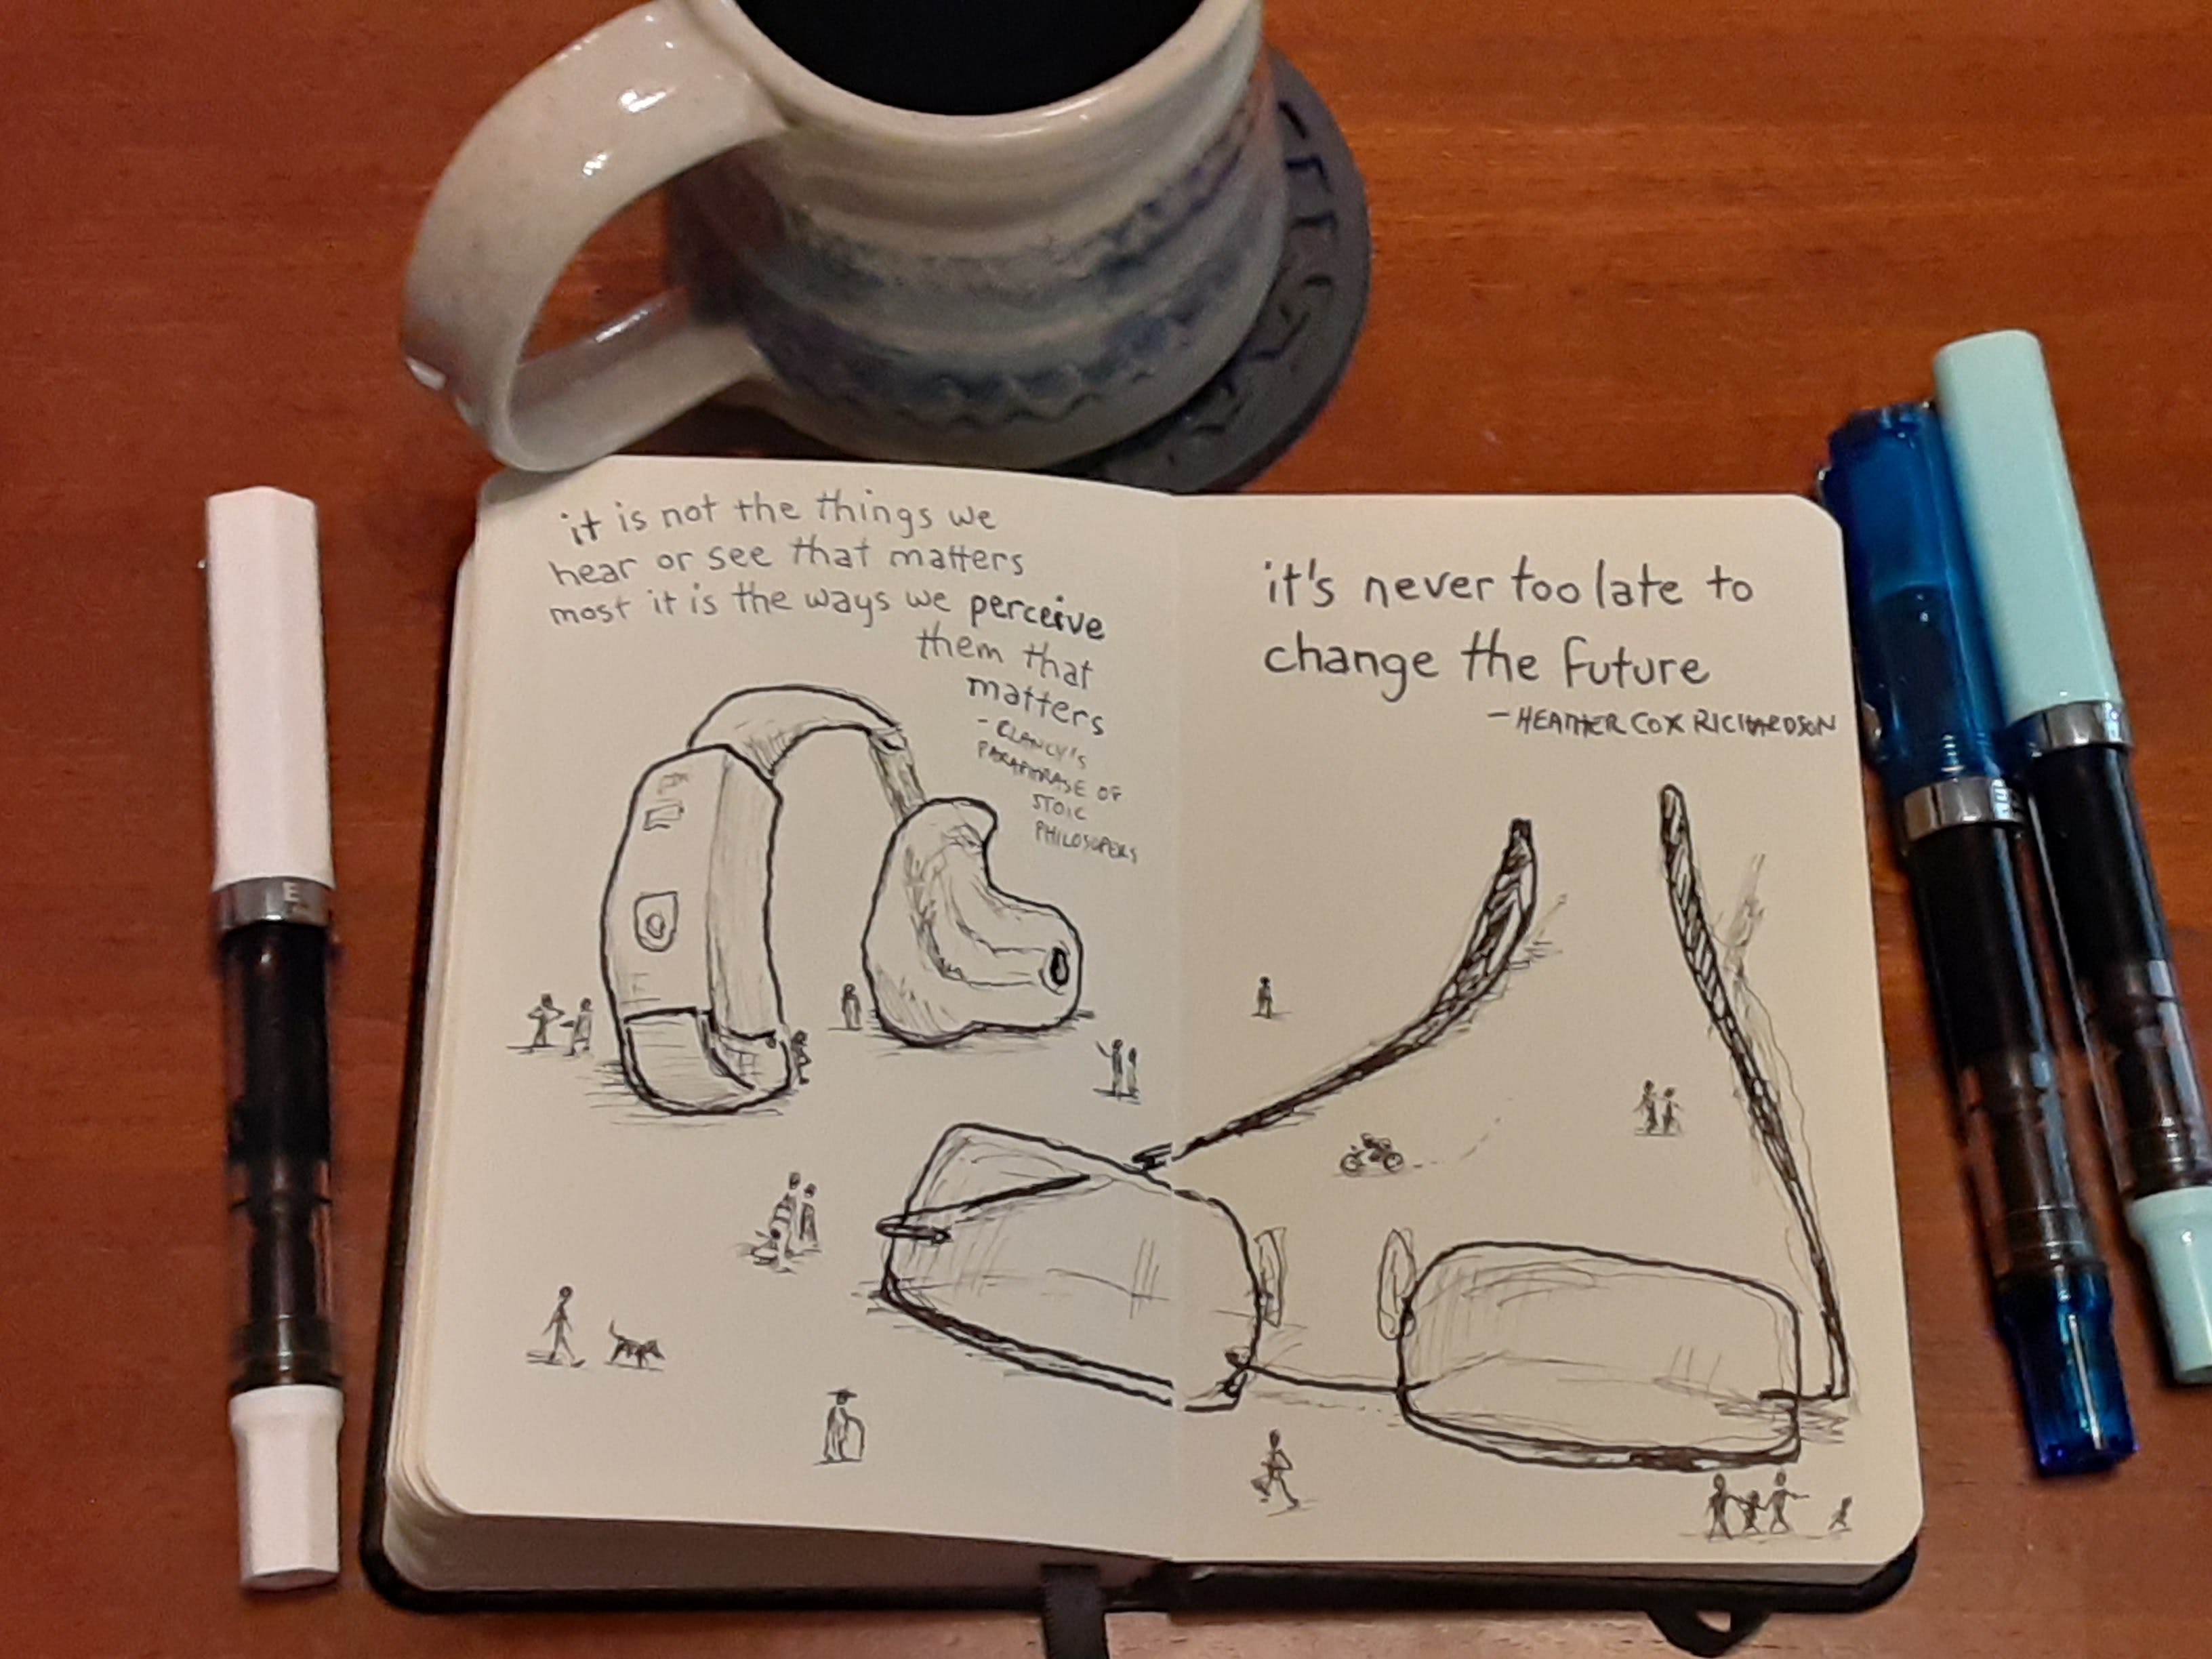 it is not the things we
hear or see that matters
most it is the ways we perceive
them that
matters
- CLANCY'S
PARAPHRASE OF
STOIC
PHILOSOPERS
it's never too late to
change the future
- HEATHER COX RICHARDSON